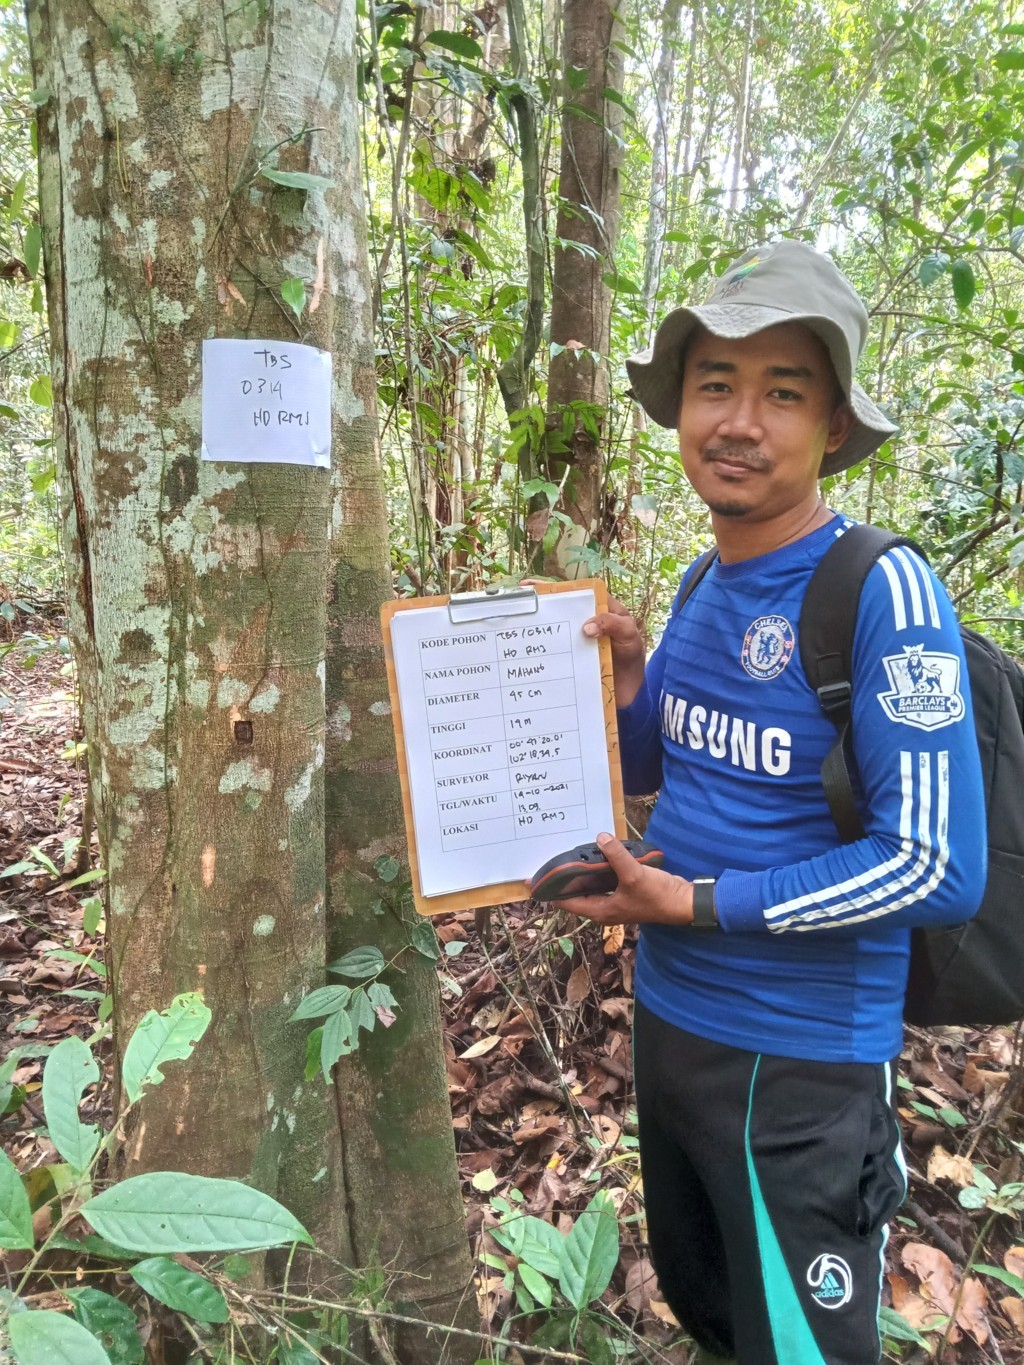 TBS
0314
HD RMJ
KODE POHON TBS/0314/
HD RMJ
NAMA POHON MAHANG
DIAMETER 45 cm
TINGGI 19 m
KOORDINAT 00° 47' 20.0'
102° 18, 39, 5
SURVEYOR RIYAN
TGL/WAKTU 14-10-2021
13.09
LOKASI HD RMJ
CHELSEA
FOOTBALL CLUB
SAMSUNG
BARCLAYS
PREMIER LEAGUE
adidas